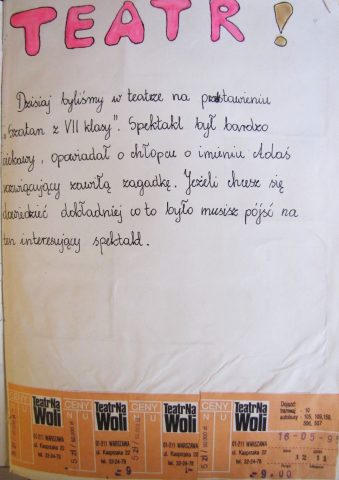 TEATR!
Dzisiaj byliśmy w teatrze na przedstawieniu
„Szatan z VII klasy". Spektakl był bardzo
ciekawy, opowiadał o chłopcu o imieniu Adaś
rozwiązujący zawiłą zagadkę. Jeżeli chcesz się
dowiedzieć dokładniej co to było musisz pójść na
ten interesujący spektakl.
CENY
TeatrNa
Woli
01-211 WARSZAWA
ul. Kasprzaka 22
tel. 32-24-78
CENY
TeatrNa
Woli
01-211 WARSZAWA
ul. Kasprzaka 22
tel. 32-24-78
5 zł
- 9
CENY
TeatrNa
Woli
01-211 WARSZAWA
ul. Kasprzaka 22
tel. 32-24-78
5 zł
CENY
TeatrNa
Woli
01-211 WARSZAWA
ul. Kasprzaka 22
tel. 32-24-78
5 zł
- 9
Dojazd:
tramwaj - 10
autobusy - 105, 109, 159,
506, 507
16-05-9
12 11
-9.00